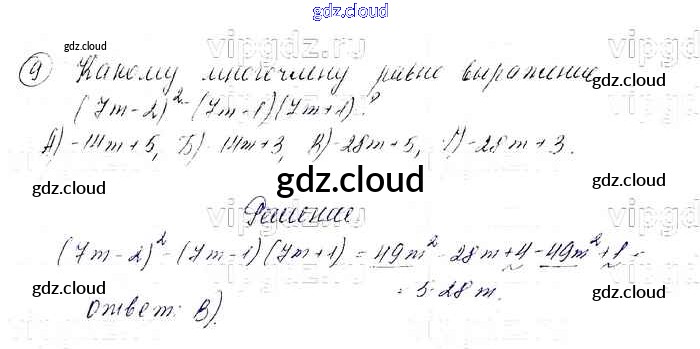 gdz.cloud
gdz.cloud
vipgdz.ru
9 Какому многочлену равно выражение
(7m-2)² - (7m-1)(7m+1)?
А) -14m+5, Б) -14m+3, В) -28m+5, Г) -28m+3.
gdz.cloud
gdz.cloud
gdz.cloud
gdz.cloud
Решение
(7m-2)² - (7m-1)(7m+1) = 49m² - 28m + 4 - 49m² + 1 =
= 5-28m.
Ответ: В).
gdz.cloud
gdz.cloud
gdz.cloud